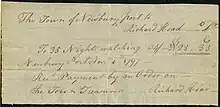 The Town of Newburyport to
Richard Hoad Dr
To 35 Nights watching
Newbury October 6 1791
Rec'd Payment by an Order on
The Town Treasurer Richard Hoad